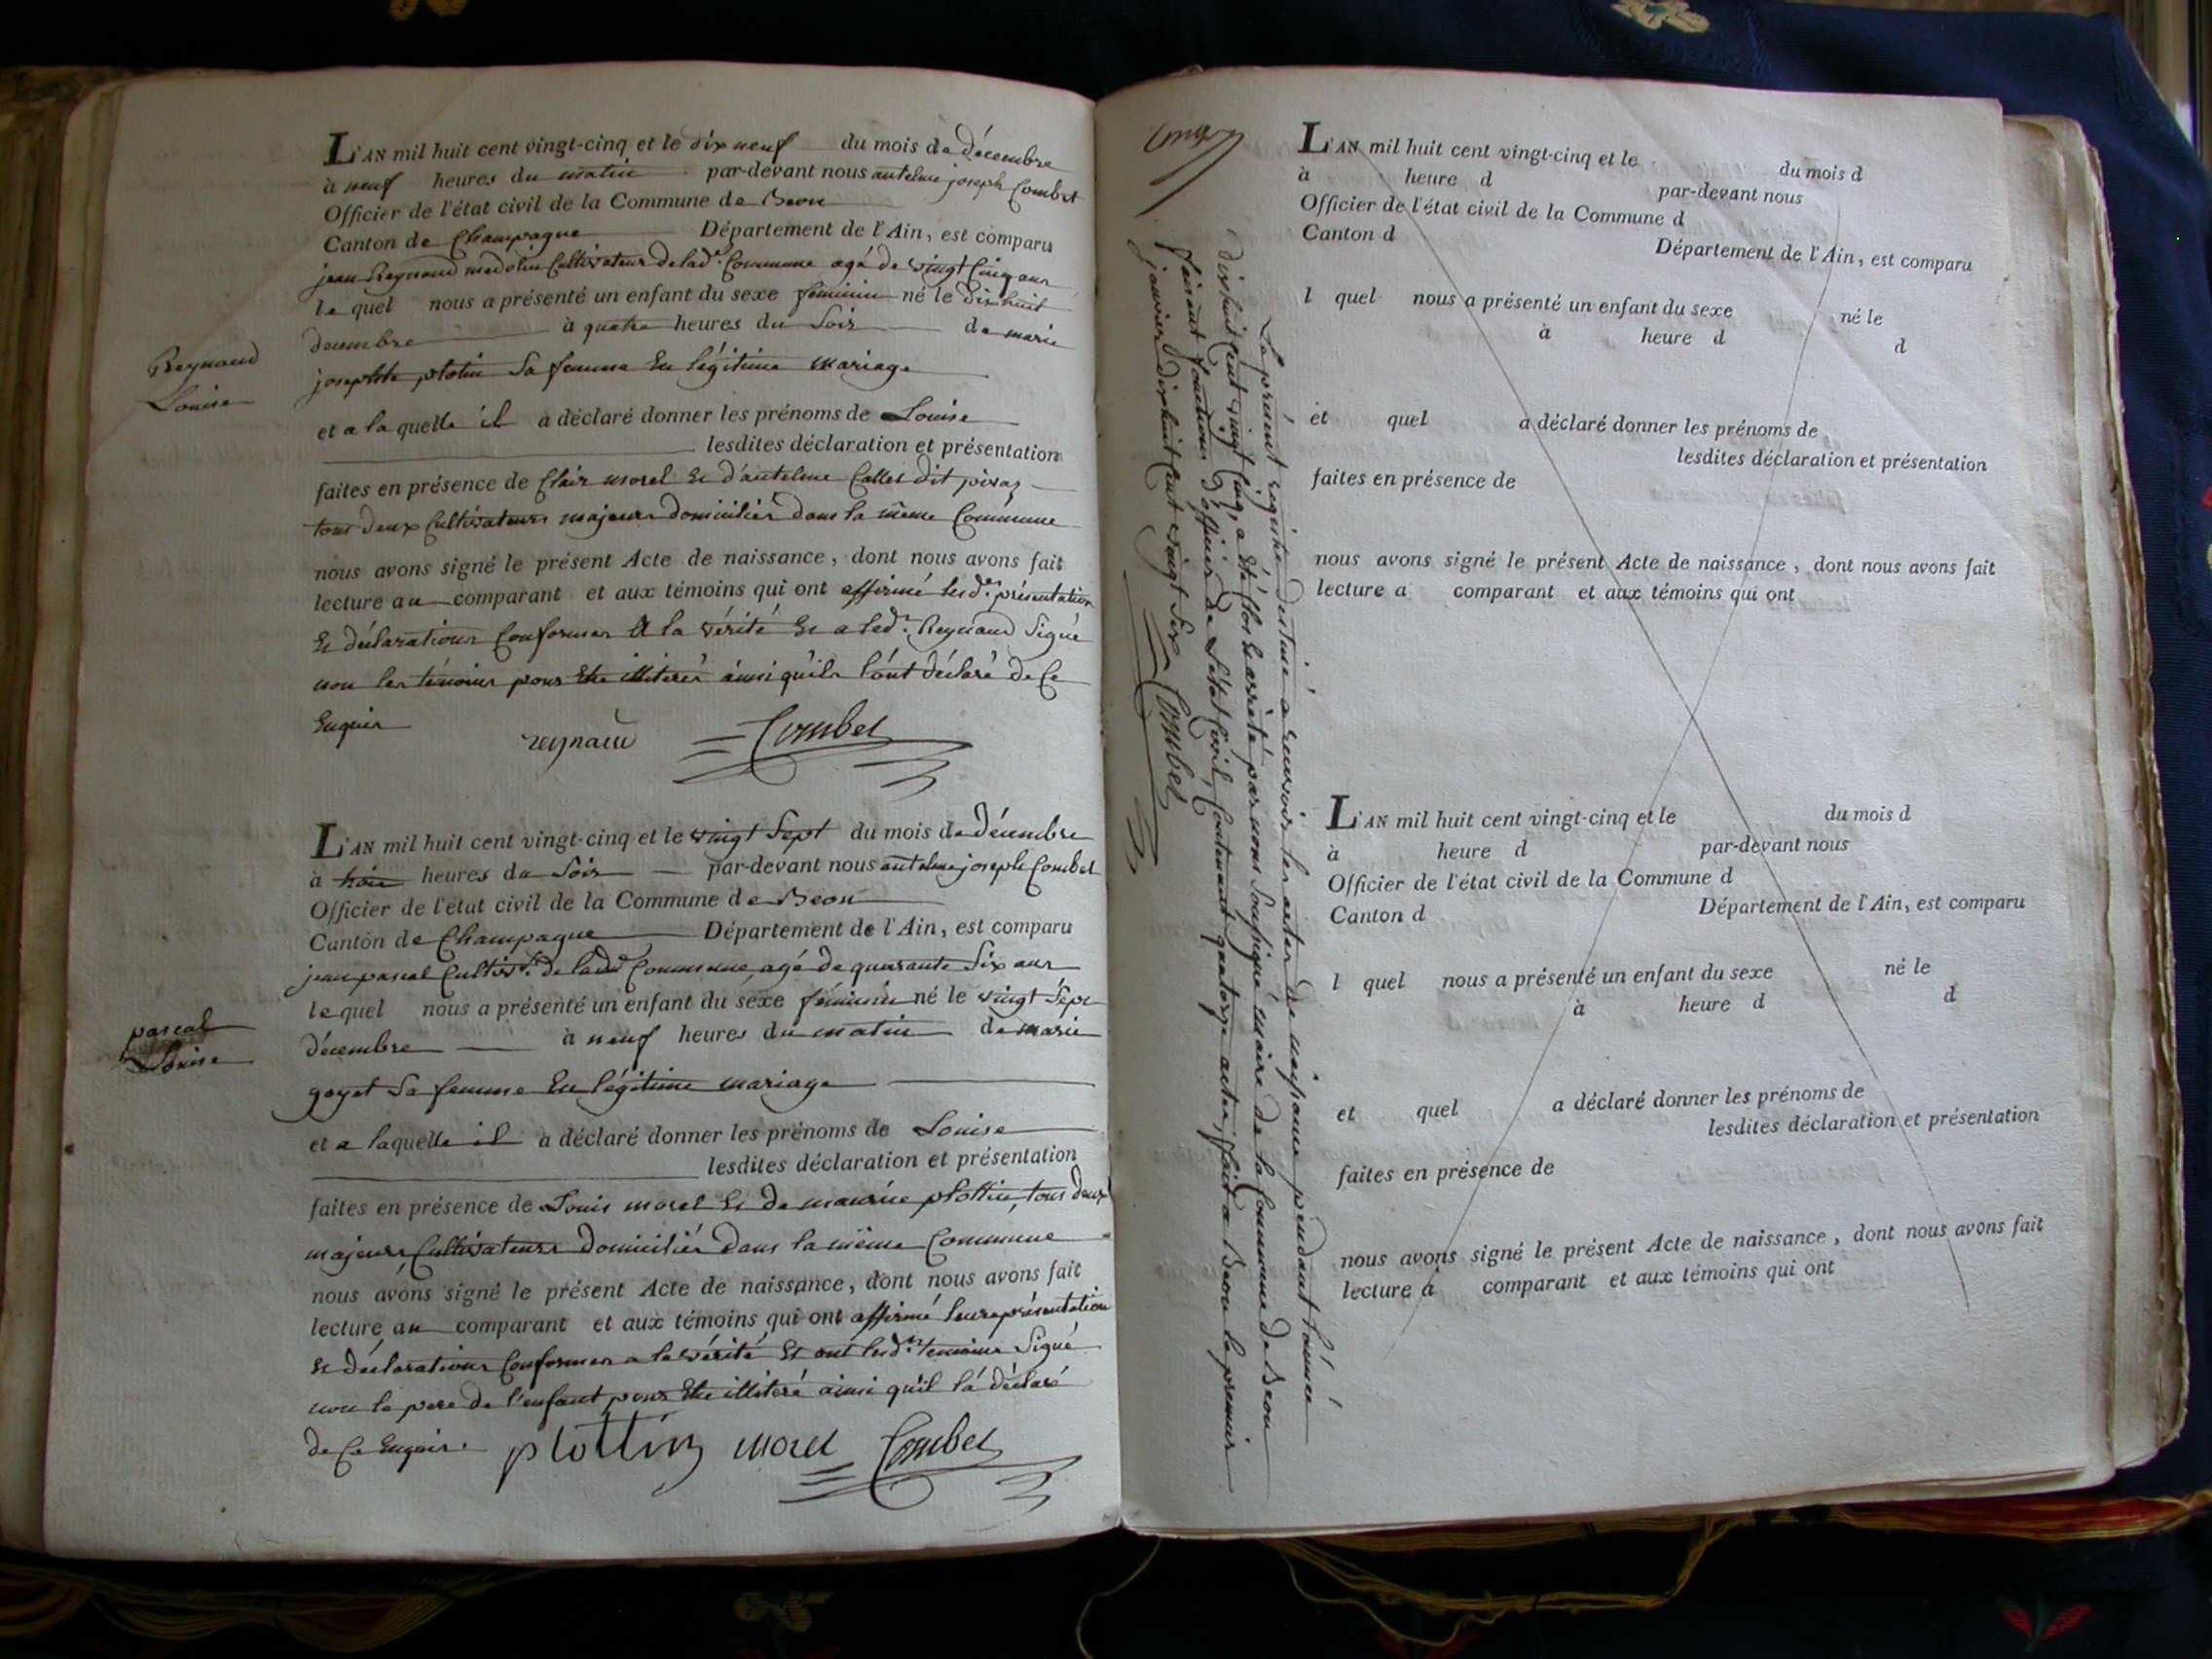 L'AN mil huit cent vingt-cinq et le dix neuf du mois de décembre
à neuf heures du matin par-devant nous antelme joseph Combet
Officier de l'état civil de la Commune de Beon
Canton de Champagne Département de l'Ain, est comparu
jean Reynaud medolin Cultivateur de lad.e Commune agé de vingt Cinq ans
le quel nous a présenté un enfant du sexe féminin né le dix huit
decembre à quatre heures du Soir de marie
josephte plotin Sa femme En légitime mariage
Reynaud
Louise
et a la quelle il a déclaré donner les prénoms de Louise
lesdites déclaration et présentation
faites en présence de Clair morel Et d'antelme Callet dit pivaz
tous deux Cultivateurs majeurs domiciliés dans la même Commune
nous avons signé le présent Acte de naissance, dont nous avons fait
lecture au comparant et aux témoins qui ont affirmé lesd.es présentation
Et déclarations Conformes A la vérité Et a led.t Reynaud Signé
non les témoins pour Etre illiterés ainsi qu'ils l'ont déclaré de Ce
Enquis
reynaud Combet
L'AN mil huit cent vingt-cinq et le vingt Sept du mois de décembre
à trois heures du Soir par-devant nous antelme joseph Combet
Officier de l'état civil de la Commune de Beon
Canton de Champagne Département de l'Ain, est comparu
jean pascal Cultiv.r de lad.e Commune, agé de quarante Six ans
le quel nous a présenté un enfant du sexe féminin né le vingt Sept
décembre à neuf heures du matin de marie
goyet Sa femme En légitime mariage
pascal
Louise
et a laquelle il a déclaré donner les prénoms de Louise
lesdites déclaration et présentation
faites en présence de Louis morel Et de maurice plottin, tous deux
majeurs Cultivateurs domiciliés dans la même Commune
nous avons signé le présent Acte de naissance, dont nous avons fait
lecture au comparant et aux témoins qui ont affirmé leurs présentation
Et déclarations Conformes a la vérité Et ont lesd.ts temoins Signé
non le pere de l'enfant pour Etre illiteré ainsi qu'il l'a déclaré
de Ce Enquis.
plottin morel Combet
Le présent régistre destiné a recevoir les actes de naissance pendant l'année
dix huit Cent vingt Cinq, a été Clos Et arrêté par nous Soussigné maire de la Commune de Beon
faisant fonctions d'officier de L'état Civil, Contenant quatorze actes, fait a Beon le premier
janvier dix huit Cent vingt Six
Combet
L'AN mil huit cent vingt-cinq et le du mois d
à heure d par-devant nous
Officier de l'état civil de la Commune d
Canton d Département de l'Ain, est comparu
l quel nous a présenté un enfant du sexe né le
à heure d d
et quel a déclaré donner les prénoms de
lesdites déclaration et présentation
faites en présence de
nous avons signé le présent Acte de naissance, dont nous avons fait
lecture a comparant et aux témoins qui ont
L'AN mil huit cent vingt-cinq et le du mois d
à heure d par-devant nous
Officier de l'état civil de la Commune d
Canton d Département de l'Ain, est comparu
l quel nous a présenté un enfant du sexe né le
à heure d d
et quel a déclaré donner les prénoms de
lesdites déclaration et présentation
faites en présence de
nous avons signé le présent Acte de naissance, dont nous avons fait
lecture a comparant et aux témoins qui ont